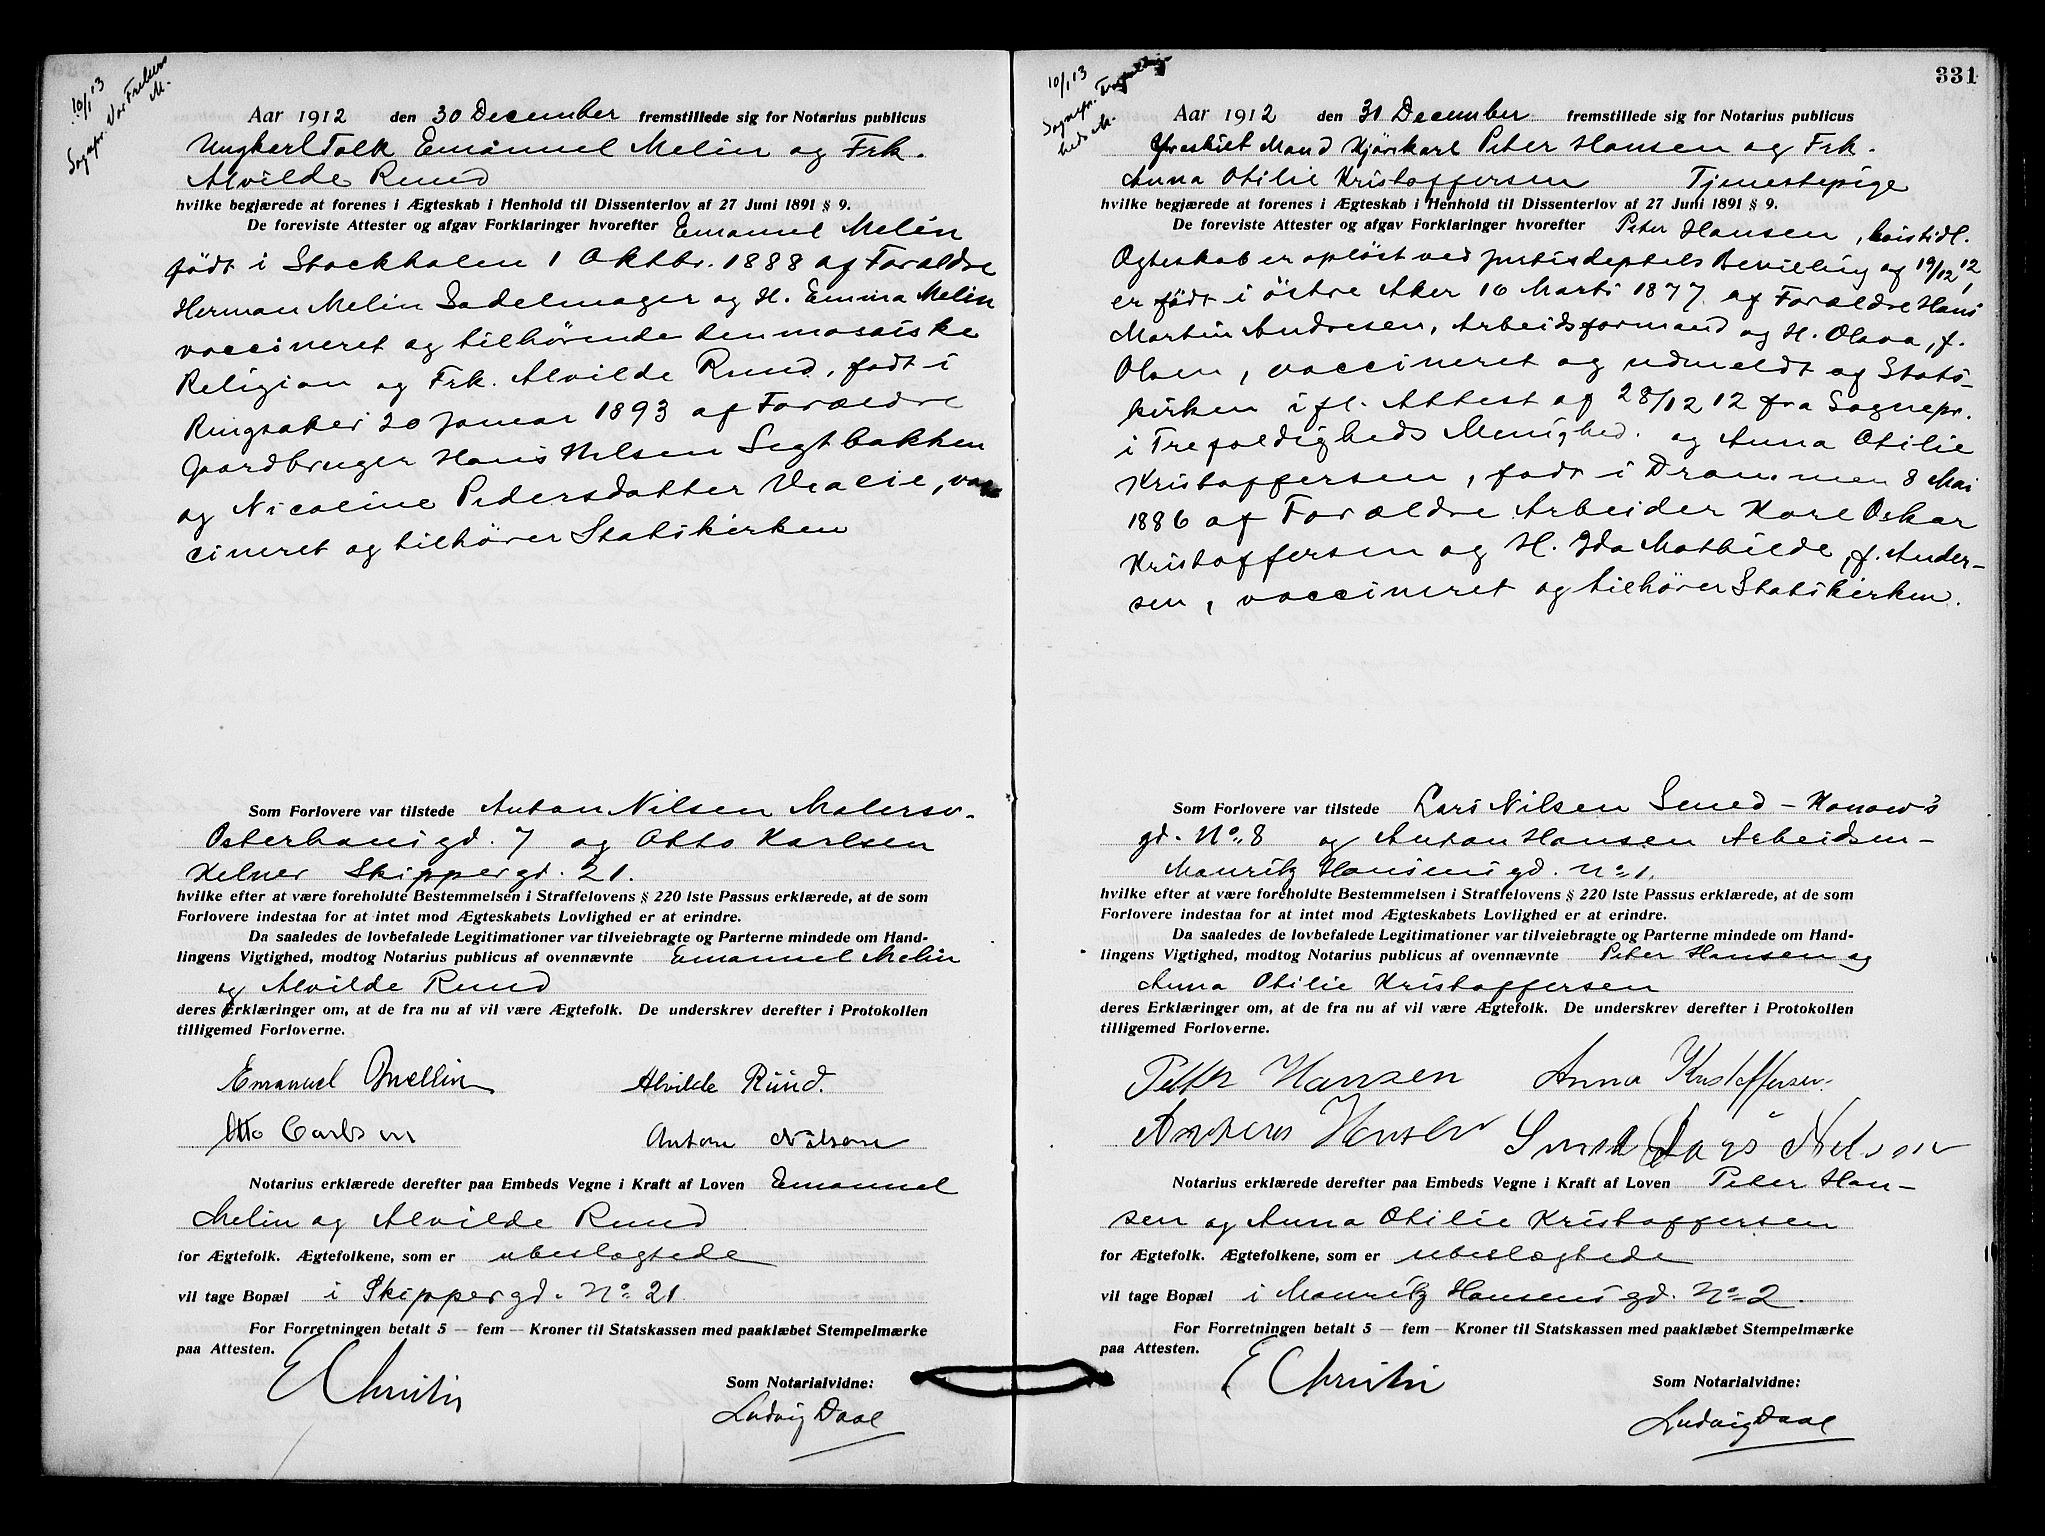 10/1 13
Sognepr. Vor Frelsers
M.
Aar 1912 den 30 December fremstillede sig for Notarius publicus
Ungkarl Tolk Emanuel Melin og Frk.
Alvilde Ruud
hvilke begjærede at forenes i Ægteskab i Henhold til Dissenterlov af 27 Juni 1891 § 9.
De foreviste Attester og afgav Forklaringer hvorefter Emanuel Melin
født i Stockholm 1 Oktbr. 1888 af Forældre
Herman Melin Sadelmager og H. Emma Melin
vaccineret og tilhørende den mosaiske
Religion og Frk. Alvilde Ruud, født i
Ringsaker 20 Januar 1893 af Forældre
Gaardbruger Hans Nilsen Segtbakken
og Nicoline Pedersdatter, vac-
cineret og tilhører Statskirken
Som Forlovere var tilstede Anton Nilsen Malersv.
Osterhausgd. 7 og Otto Karlsen
Kelner Skippergd. 21.
hvilke efter at være foreholdte Bestemmelsen i Straffelovens § 220 1ste Passus erklærede, at de som
Forlovere indestaa for at intet mod Ægteskabets Lovlighed er at erindre.
Da saaledes de lovbefalede Legitimationer var tilveiebragte og Parterne mindede om Hand-
lingens Vigtighed, modtog Notarius publicus af ovennævnte Emanuel Melin
og Alvilde Ruud
deres Erklæringer om, at de fra nu af vil være Ægtefolk. De underskrev derefter i Protokollen
tilligemed Forloverne.
Emanuel Mellin Alvilde Ruud.
Otto Carlson Anton Nilsen
Notarius erklærede derefter paa Embeds Vegne i Kraft af Loven Emanuel
Melin og Alvilde Ruud
for Ægtefolk. Ægtefolkene, som er ubeslægtede
vil tage Bopæl i Skippergd. No 21
For Forretningen betalt 5 — fem — Kroner til Statskassen med paaklæbet Stempelmærke
paa Attesten.
E Christin
Som Notarialvidne:
Ludvig Daae
331
10/1 13
Sognepr. Trefoldig-
heds M.
Aar 1912 den 31 December fremstillede sig for Notarius publicus
fraskilt Mand Kjørekarl Peter Hansen og Frk.
Anna Otilie Kristoffersen Tjenestepige
hvilke begjærede at forenes i Ægteskab i Henhold til Dissenterlov af 27 Juni 1891 § 9.
De foreviste Attester og afgav Forklaringer hvorefter Peter Hansen, hvis tidl.
Ægteskab er opløst ved Justisdeptets Bevilling af 19/12 12,
er født i østre Aker 16 Marts 1877 af Forældre Hans
Martin Andresen, Arbeidsformand og H. Olava, f.
Olsen, vaccineret og udmeldt af Stats-
kirken ifl. Attest af 28/12 12 fra Sognepr.
i Trefoldigheds Menighed. og Anna Otilie
Kristoffersen, født i Drammen 8 Mai
1886 af Forældre Arbeider Karl Oskar
Kristoffersen og H. Ida Mathilde, f. Ander-
sen, vaccineret og tilhører Statskirken.
Som Forlovere var tilstede Lars Nilsen Smed - Konows
gd. No. 8 og Anton Hansen Arbeidsm-
Mauritz Hansensgd. No 1.
hvilke efter at være foreholdte Bestemmelsen i Straffelovens § 220 1ste Passus erklærede, at de som
Forlovere indestaa for at intet mod Ægteskabets Lovlighed er at erindre.
Da saaledes de lovbefalede Legitimationer var tilveiebragte og Parterne mindede om Hand-
lingens Vigtighed, modtog Notarius publicus af ovennævnte Peter Hansen og
Anna Otilie Kristoffersen
deres Erklæringer om, at de fra nu af vil være Ægtefolk. De underskrev derefter i Protokollen
tilligemed Forloverne.
Peter Hansen Anna Kristoffersen.
Hansen Smed Lars Nilsen
Notarius erklærede derefter paa Embeds Vegne i Kraft af Loven Peter Han-
sen og Anna Otilie Kristoffersen
for Ægtefolk. Ægtefolkene, som er ubeslægtede
vil tage Bopæl i Mauritz Hansensgd. No 2.
For Forretningen betalt 5 — fem — Kroner til Statskassen med paaklæbet Stempelmærke
paa Attesten.
E Christin
Som Notarialvidne:
Ludvig Daae